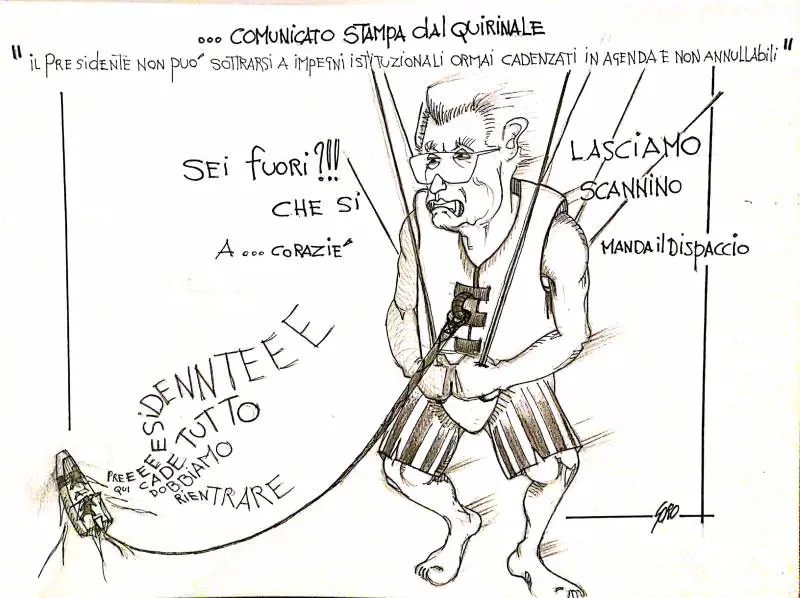 ... COMUNICATO STAMPA dal QUIRINALE
"il PRESIDENTE NON PUO' SOTTRARSI A IMPEGNI ISTITUZIONALI ORMAI CADENZATI IN AGENDA E NON ANNULLABILI"
SEI FUORI?!!!
CHE SI
A ... CORAZIE'
LASCIAMO
SCANNINO
MANDA il DISPACCIO
PREEEEESIDENNTEEE
QUI CADE TUTTO
DOBBIAMO
RIENTRARE